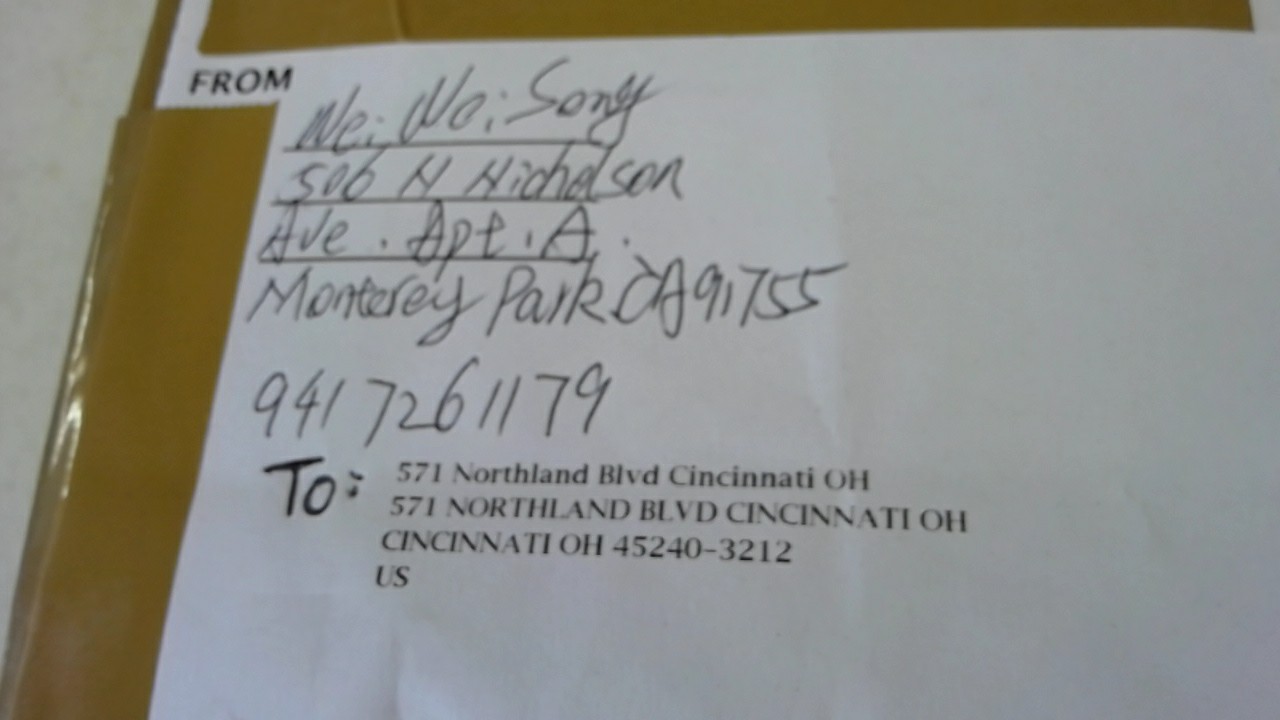 FROM
Wei Wei Song
506 N Nicholson
Ave. Apt. A.
Monterey Park CA 91755
9417261179
To: 571 Northland Blvd Cincinnati OH
571 NORTHLAND BLVD CINCINNATI OH
CINCINNATI OH 45240-3212
US